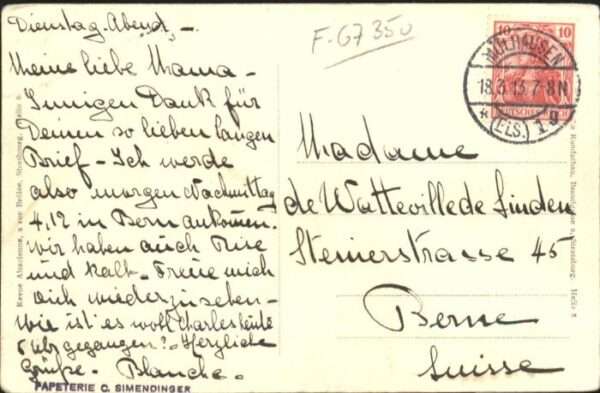 Dienstag. Abend. -
Meine liebe Mama -
Innigen Dank für
Deinen so lieben langen
Brief - Ich werde
also morgen Nachmittag
4,12 in Bern ankommen.
wir haben auch Bise
und kalt - Freue mich
Dich wiederzusehen -
Wie ist es wohl Charles heute
5 Uhr gegangen? - Herzliche
Grüße. Blanche.
PAPETERIE C. SIMENDINGER
F-G7 350
10 10
MÜLHAUSEN
18.3.13.7-8N
* (ELS.) 1g
Madame
de Watteville de Linden
Steinerstrasse 45
Berne
Suisse
Revue Alsacienne,
Strasbourg,